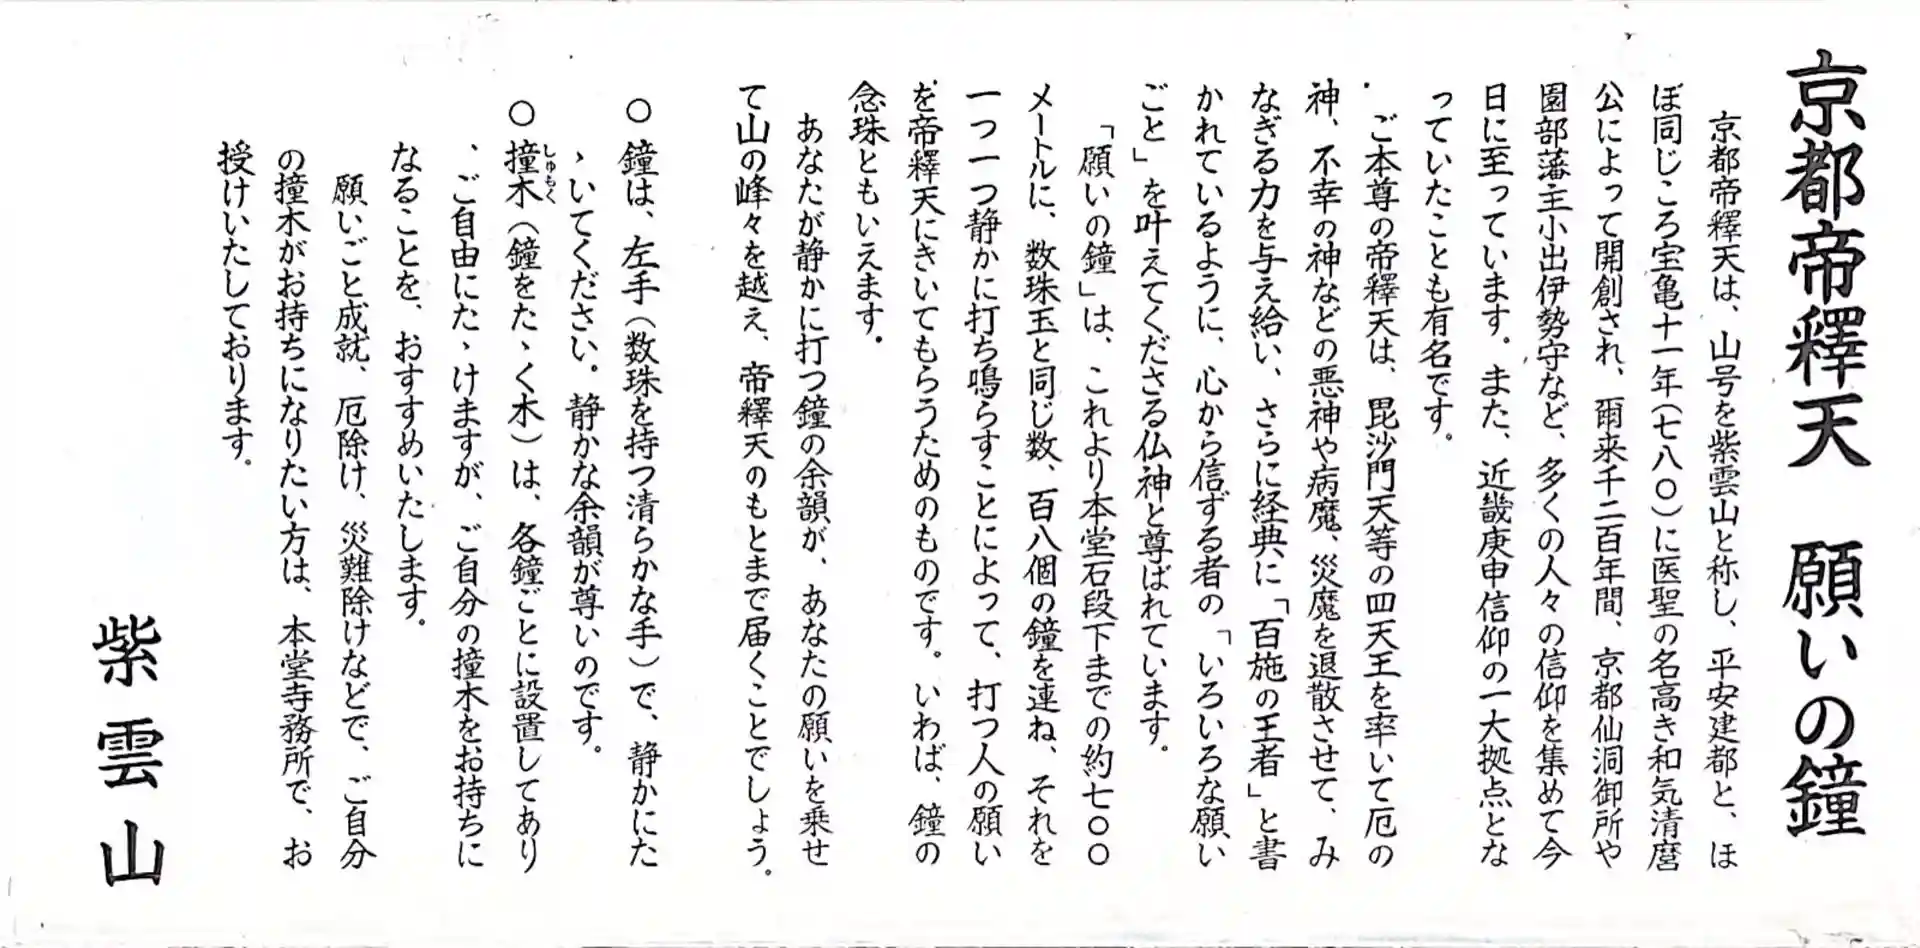 京都帝釋天　願いの鐘
京都帝釋天は、山号を紫雲山と称し、平安建都と、ほ
ぼ同じころ宝亀十一年(七八〇)に医聖の名高き和気清麿
公によって開創され、爾来千二百年間、京都仙洞御所や
園部藩主小出伊勢守など、多くの人々の信仰を集めて今
日に至っています。また、近畿庚申信仰の一大拠点とな
っていたことも有名です。
ご本尊の帝釋天は、毘沙門天等の四天王を率いて厄の
神、不幸の神などの悪神や病魔、災魔を退散させて、み
なぎる力を与え給い、さらに経典に「百施の王者」と書
かれているように、心から信ずる者の「いろいろな願い
ごと」を叶えてくださる仏神と尊ばれています。
「願いの鐘」は、これより本堂石段下までの約七〇〇
メートルに、数珠玉と同じ数、百八個の鐘を連ね、それを
一つ一つ静かに打ち鳴らすことによって、打つ人の願い
を帝釋天にきいてもらうためのものです。いわば、鐘の
念珠ともいえます。
あなたが静かに打つ鐘の余韻が、あなたの願いを乗せ
て山の峰々を越え、帝釋天のもとまで届くことでしょう。
〇 鐘は、左手(数珠を持つ清らかな手)で、静かにた
ゝいてください。静かな余韻が尊いのです。
〇 撞木(鐘をたゝく木)は、各鐘ごとに設置してあり
しゅもく
、ご自由にたゝけますが、ご自分の撞木をお持ちに
なることを、おすすめいたします。
願いごと成就、厄除け、災難除けなどで、ご自分
の撞木がお持ちになりたい方は、本堂寺務所で、お
授けいたしております。
紫雲山